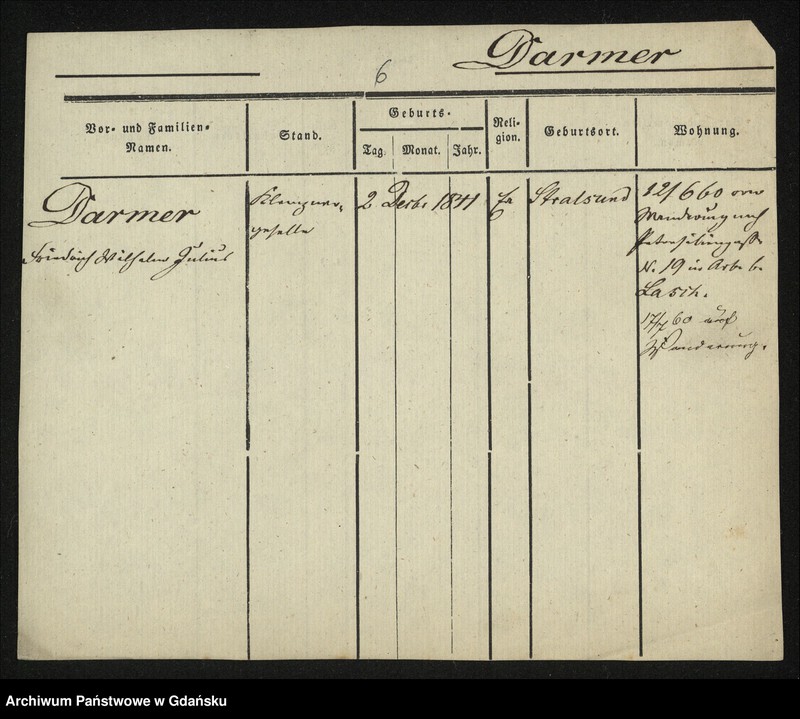 Darmer
6
Vor- und Familien-
Namen.
Stand.
Geburts-
Tag.
Monat.
Jahr.
Reli-
gion.
Geburtsort.
Wohnung.
Darmer
Friedrich Wilhelm Julius
Klempner-
geselle
2
Decbr
1841
Ev
Stralsund
12/6 60 von
Wanderung nach
Petersiliengasse
N. 19 in Arb. b.
Lasch.
17/7 60 auf
Wanderung.
Archiwum Państwowe w Gdańsku